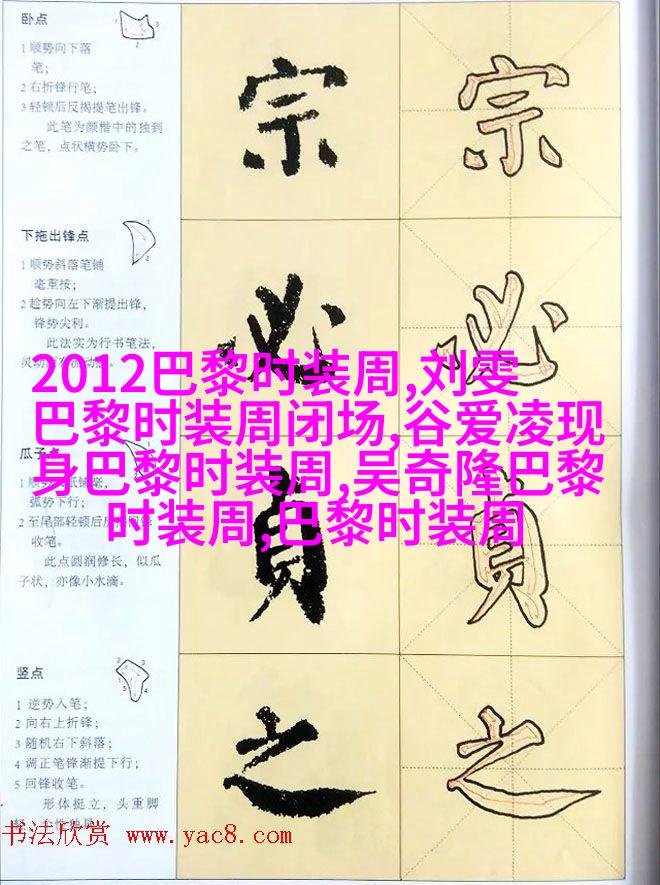 卧点
1 顺势向下落
笔；
2 右折锋行笔；
3 轻顿后反揭提笔出锋。
此笔为颜楷中的独到
之笔，点状横势卧下。
宗
宗
下拖出锋点
1 顺势斜落笔铺
毫重按；
2 趁势向左下渐提出锋，
锋势尖利。
此法实为行书笔法，
必
必
2012巴黎时装周,刘雯
巴黎时装周闭场,谷爱凌现
身巴黎时装周,吴奇隆巴黎
时装周,巴黎时装周
瓜子点
弧势下行；
2 至尾部轻顿后反
收笔。
此点圆润修长，似瓜
子状，亦像小水滴。
贲
贲
竖点
1 逆势入笔；
2 向右上折锋；
3 随机右下斜落；
4 调正笔锋渐提下行；
5 回锋收笔。
形体挺立，头重脚
之
之
书法欣赏 www.yac8.com